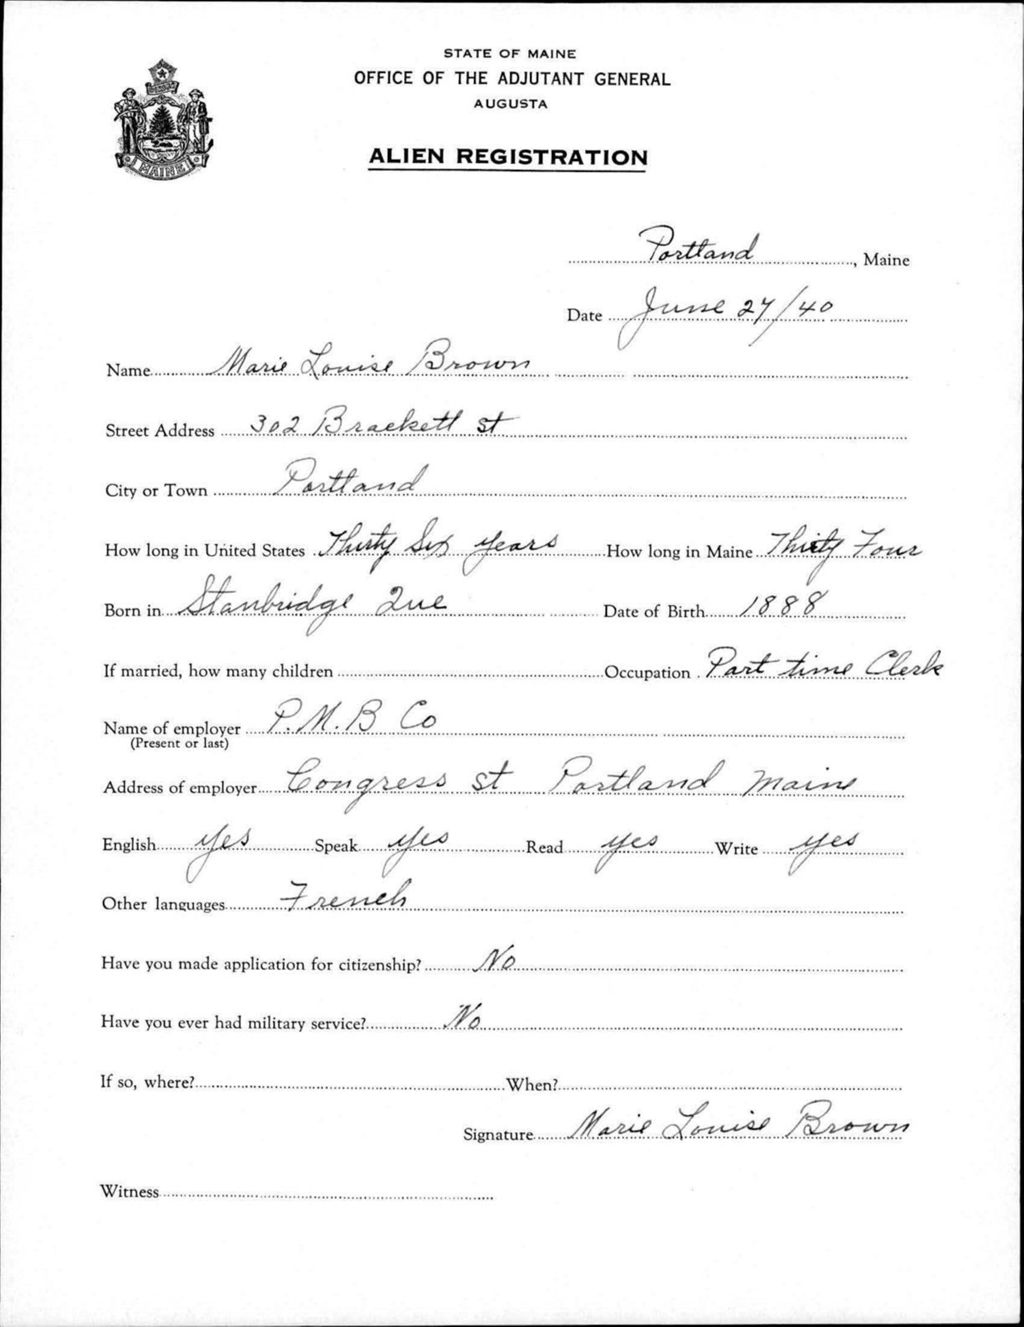 STATE OF MAINE
OFFICE OF THE ADJUTANT GENERAL
AUGUSTA
ALIEN REGISTRATION
MAINE
Portland, Maine
Date June 27/40
Name Marie Louise Brown
Street Address 302 Brackett St
City or Town Portland
How long in United States Thirty Six years How long in Maine Thirty Four
Born in Stanbridge Que Date of Birth 1888
If married, how many children Occupation Part time Clerk
Name of employer P.M.B Co
(Present or last)
Address of employer Congress St Portland Maine
English yes Speak yes Read yes Write yes
Other languages French
Have you made application for citizenship? No
Have you ever had military service? No
If so, where? When?
Signature Marie Louise Brown
Witness